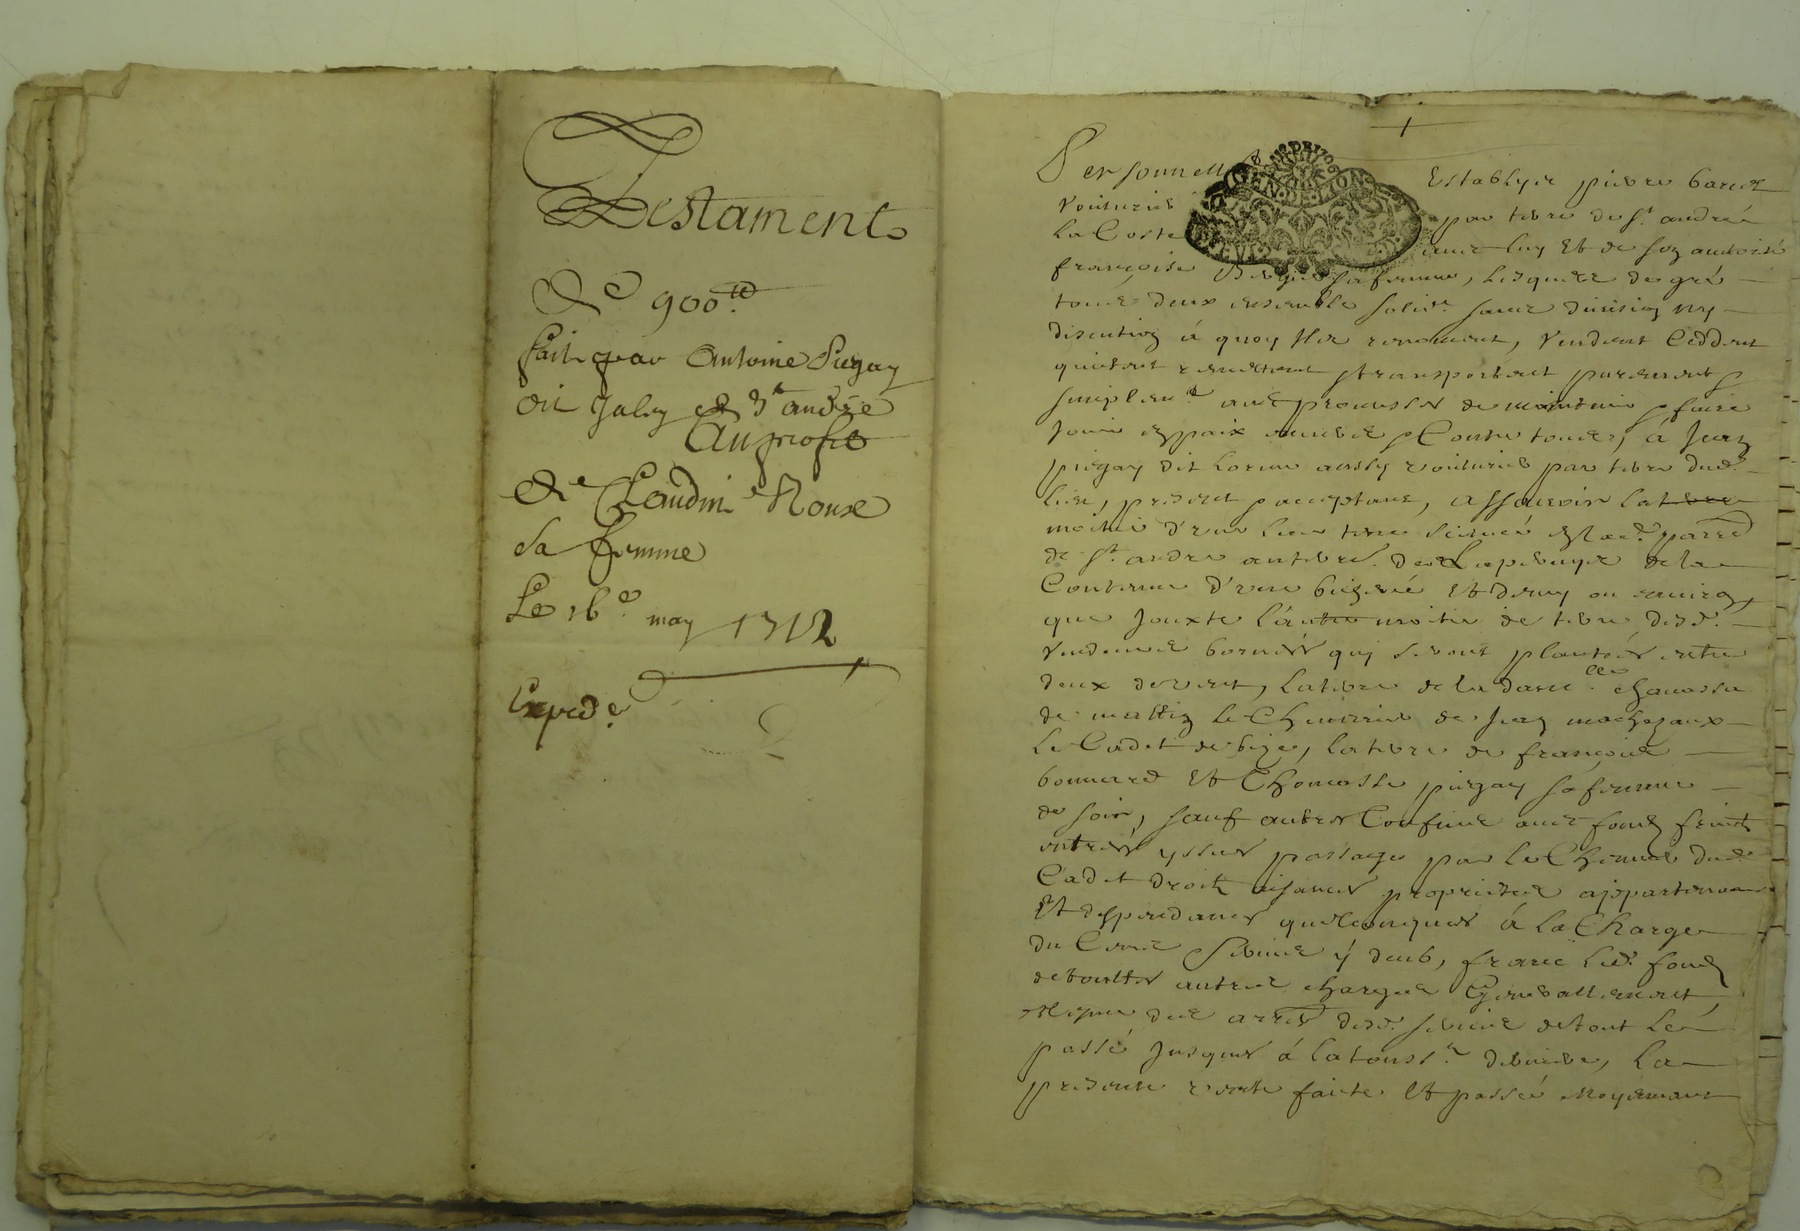 Testament
De 900ᵗᵗ
fait par Antoine Piegay
dit Jaley de Sᵗ andré
Au profit
De Claudine Roux
Sa femme
Le 16ᵉ may 1712
Exped.ᵉ
Personnell Establyɇ pierre
Voiturier par terre de Sᵗ andrée
La Coste avec luy Et de soy autorisé
françoise sa femme, Lesquels de gré
tous deux ensemble solid.ᵗ sans division ny
discution à quoy Ils renoncent, Vendent Ceddent
quittent remettent transportent purement
simplem.ᵗ avec promesses de maintenir faire
Jouir en paix envers Contre tous, à Jean
piegay dit Lorme aussy voiturier par terre dud.
lieu, present acceptant, assavoir la terre
moitié d'une terre située en lad. parr.
de Sᵗ andre de la
Contenue d'une bicherée Et demy ou environ
que Jouxte L'autre moitié de terre desd.
Vendeurs bornes quy seront plantées entre
deux de vent, la terre de la dam.ᵉˡˡᵉ
de matin le Chemin de Jean
Le Cadet de bize, la terre de françois
bonnard Et Thomasse piegay sa femme
de soir, sauf autres Confins avec fonds
entrées yssues passage par le Chemin dud.
Cadet droits aisances proprietés appartenances
Et dependances quelconques à la Charge
du Cens Servis y deub, franc led. fonds
de touttes autres charges Generallement,
des arr. desd. servis de tout Le
passé Jusques à la touss.ᵗ derniere, La
presente vente faite Et passée Moyennant